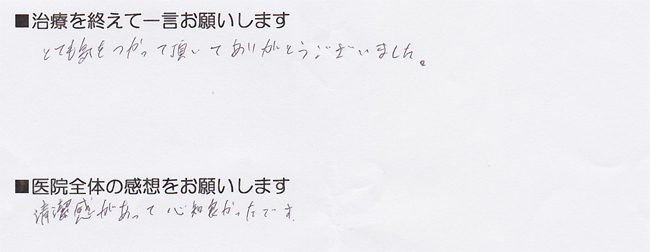 ■治療を終えて一言お願いします
とても気をつかって頂いてありがとうございました。
■医院全体の感想をお願いします
清潔感があって心地良かったです